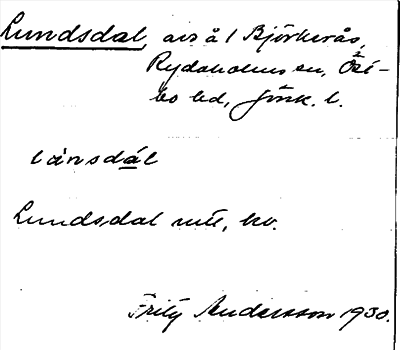 Lundsdal, avs å 1 Björkerås,
Rydaholms sn, Öst-
bo hd, Jönk. l.
lánsdál
Lundsdal utt, kv.
Fritz Andersson 1930.